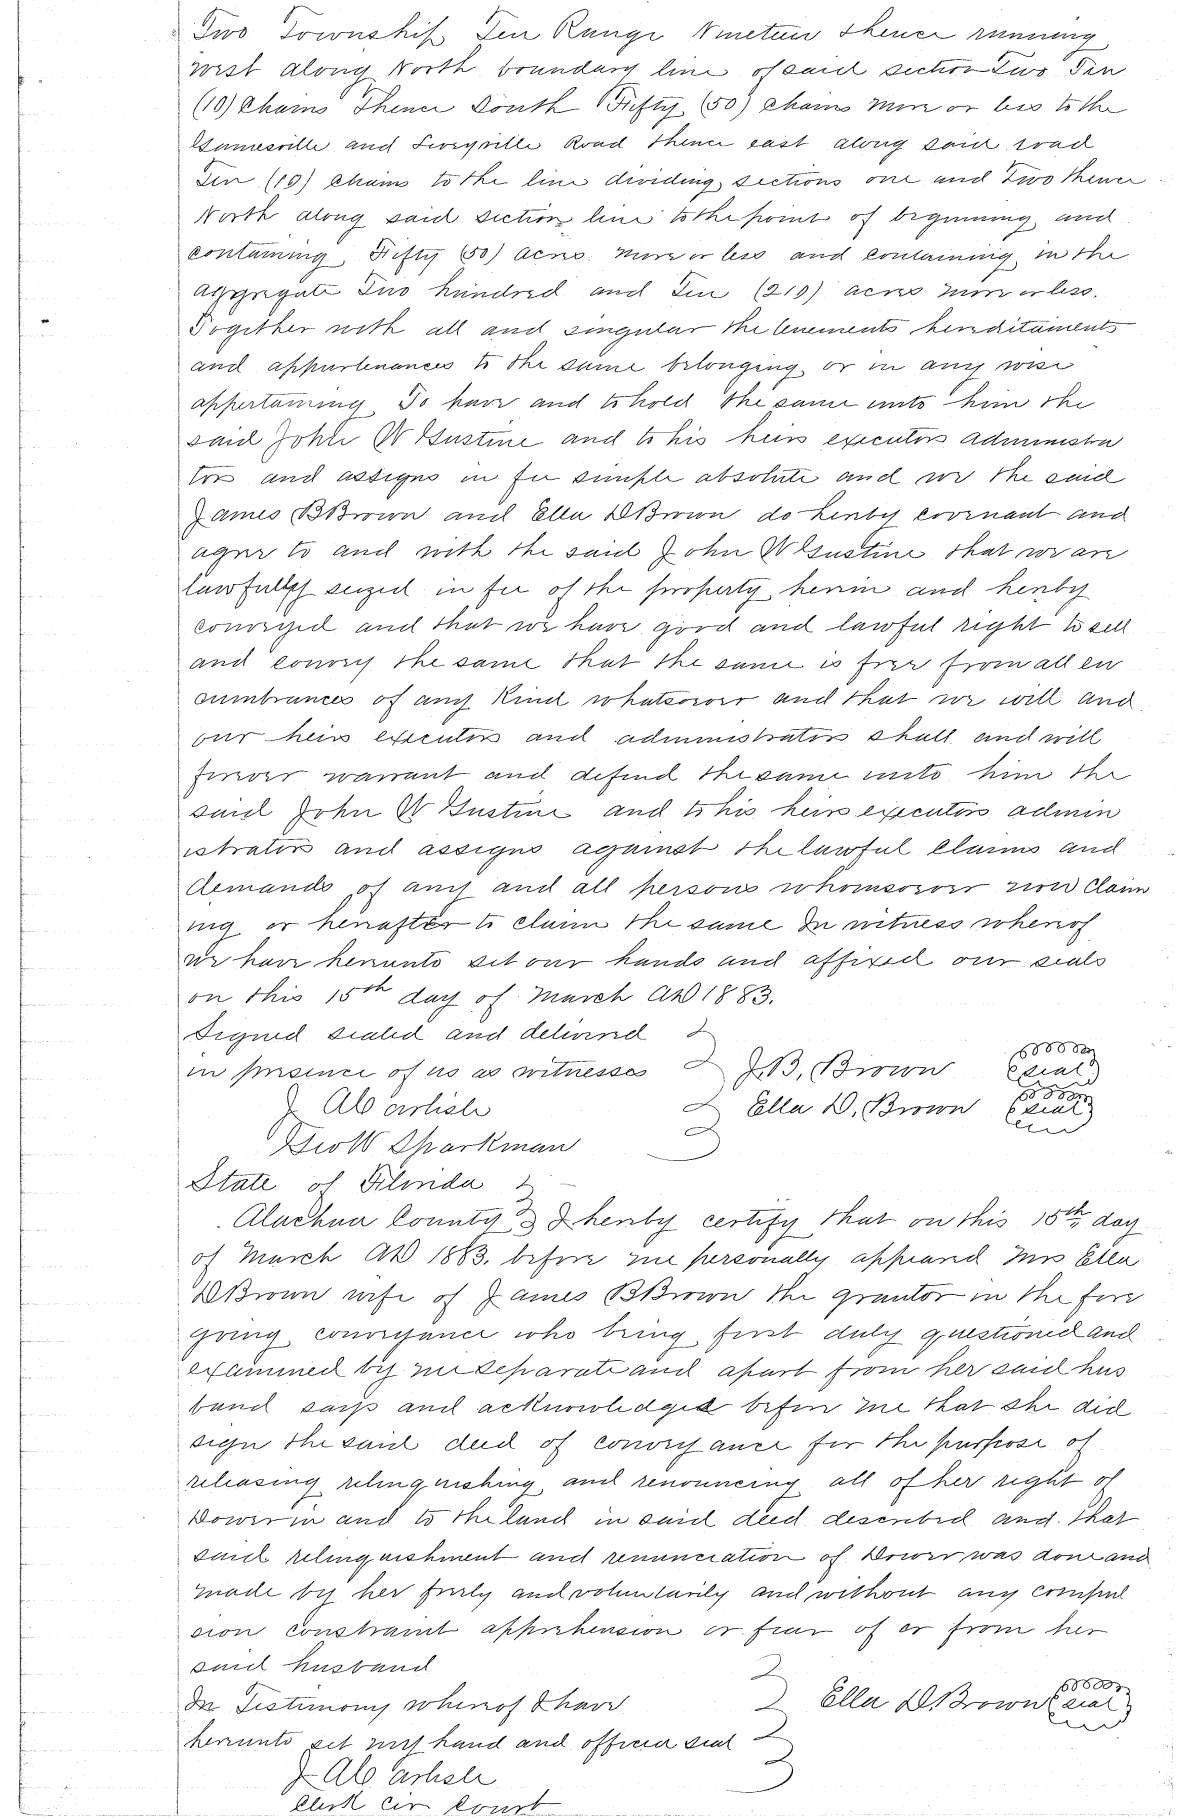 Two Township Ten Range Nineteen thence running
west along North boundary line of said section Two Ten
(10) Chains Thence South Fifty (50) Chains more or less to the
Gainesville and Road thence east along said road
Ten (10) Chains to the line dividing sections one and Two thence
North along said section line to the point of beginning and
containing Fifty (50) acres more or less and containing in the
aggregate Two hundred and Ten (210) acres more or less.
Together with all and singular the tenements hereditaments
and appurtenances to the same belonging or in any wise
appertaining To have and to hold the same unto him the
said John W Gustine and to his heirs executors administra
tors and assigns in fee simple absolute and we the said
James B Brown and Ella D Brown do hereby covenant and
agree to and with the said John W Gustine that we are
lawfully seized in fee of the property herein and hereby
conveyed and that we have good and lawful right to sell
and convey the same that the same is free from all en
cumbrances of any Kind whatsoever and that we will and
our heirs executors and administrators shall and will
forever warrant and defend the same unto him the
said John W Gustine and to his heirs executors admin
istrators and assigns against the lawful claims and
demands of any and all persons whomsoever now claim
ing or hereafter to claim the same In witness whereof
we have hereunto set our hands and affixed our seals
on this 15th day of March AD 1883.
Signed sealed and delivered
in presence of us as witnesses J.B. Brown seal
J A Carlisle Ella D. Brown seal
Geo W Sparkman
State of Florida
Alachua County I hereby certify that on this 15th day
of March AD 1883. before me personally appeared Mrs Ella
D Brown wife of James B Brown the grantor in the fore
going conveyance who being first duly questioned and
examined by me separate and apart from her said hus
band says and acknowledged before me that she did
sign the said deed of conveyance for the purpose of
releasing relinquishing and renouncing all of her right of
Dower in and to the land in said deed described and that
said relinquishment and renunciation of Dower was done and
made by her freely and voluntarily and without any compul
sion constraint apprehension or fear of or from her
said husband
In Testimony whereof I have Ella D Brown seal
hereunto set my hand and official seal
J A Carlisle
Clerk cir Court